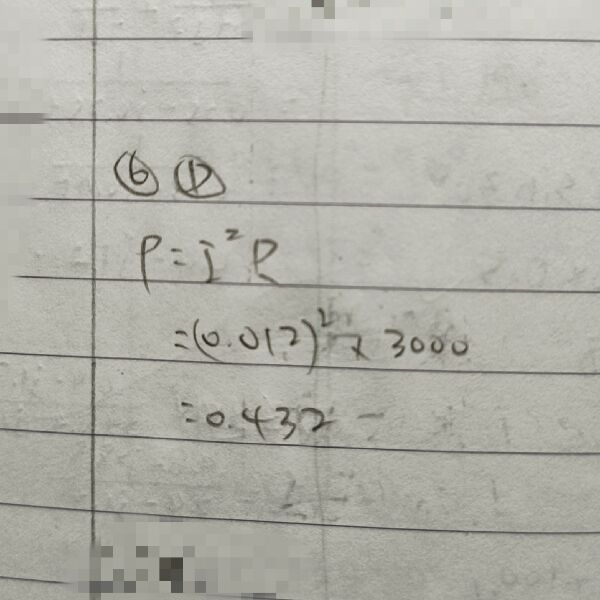 ⑥ ①
P = I²R
= (0.012)² × 3000
= 0.432